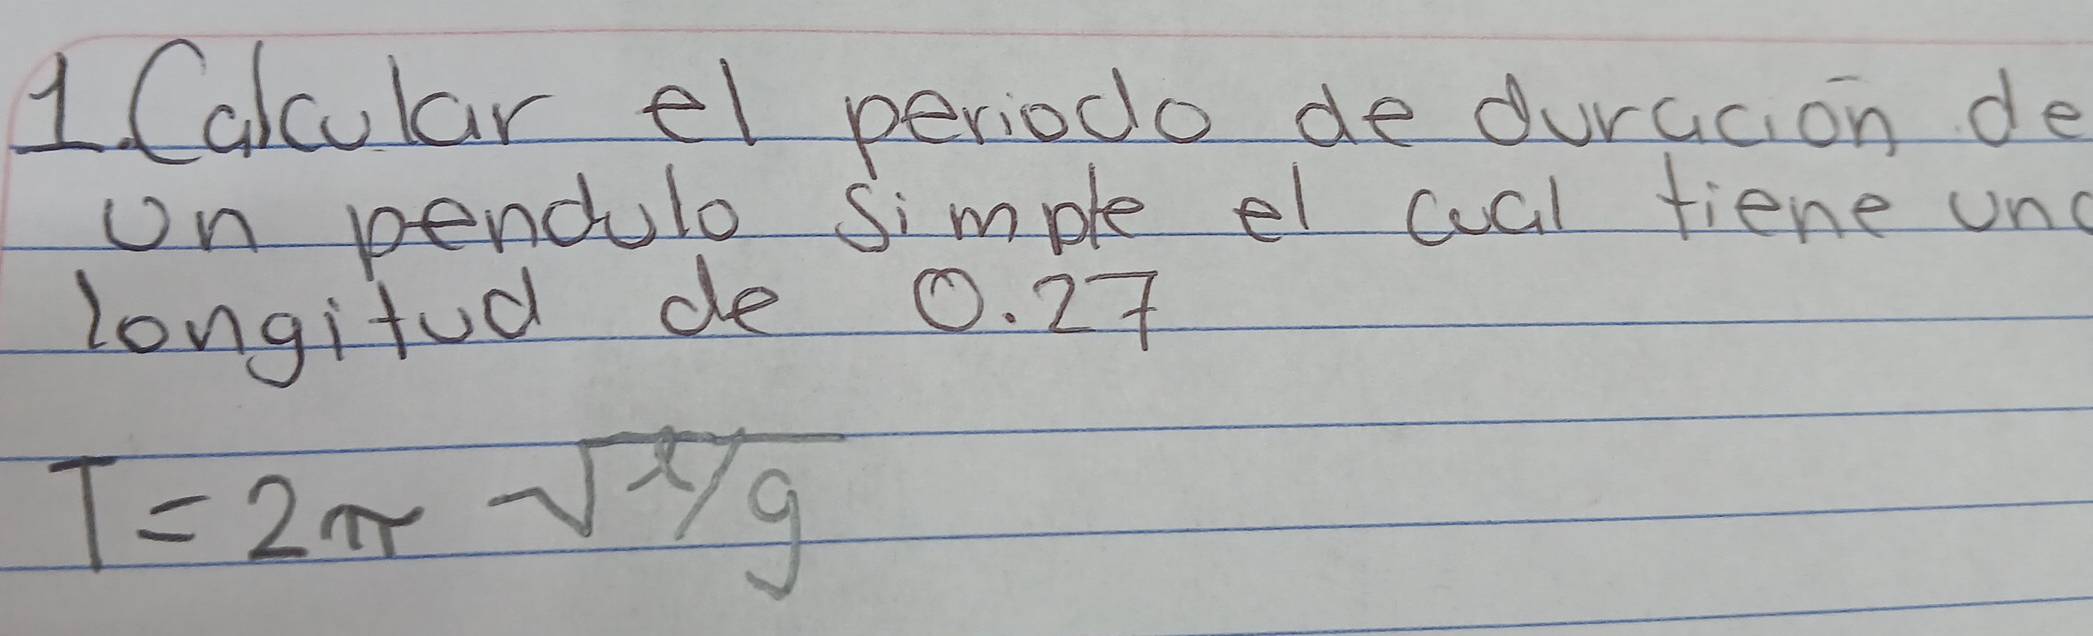 1. Calcular el periodo de duración de
un pendulo simple el cual tiene una
longitud de 0.27
T = 2π √l/g